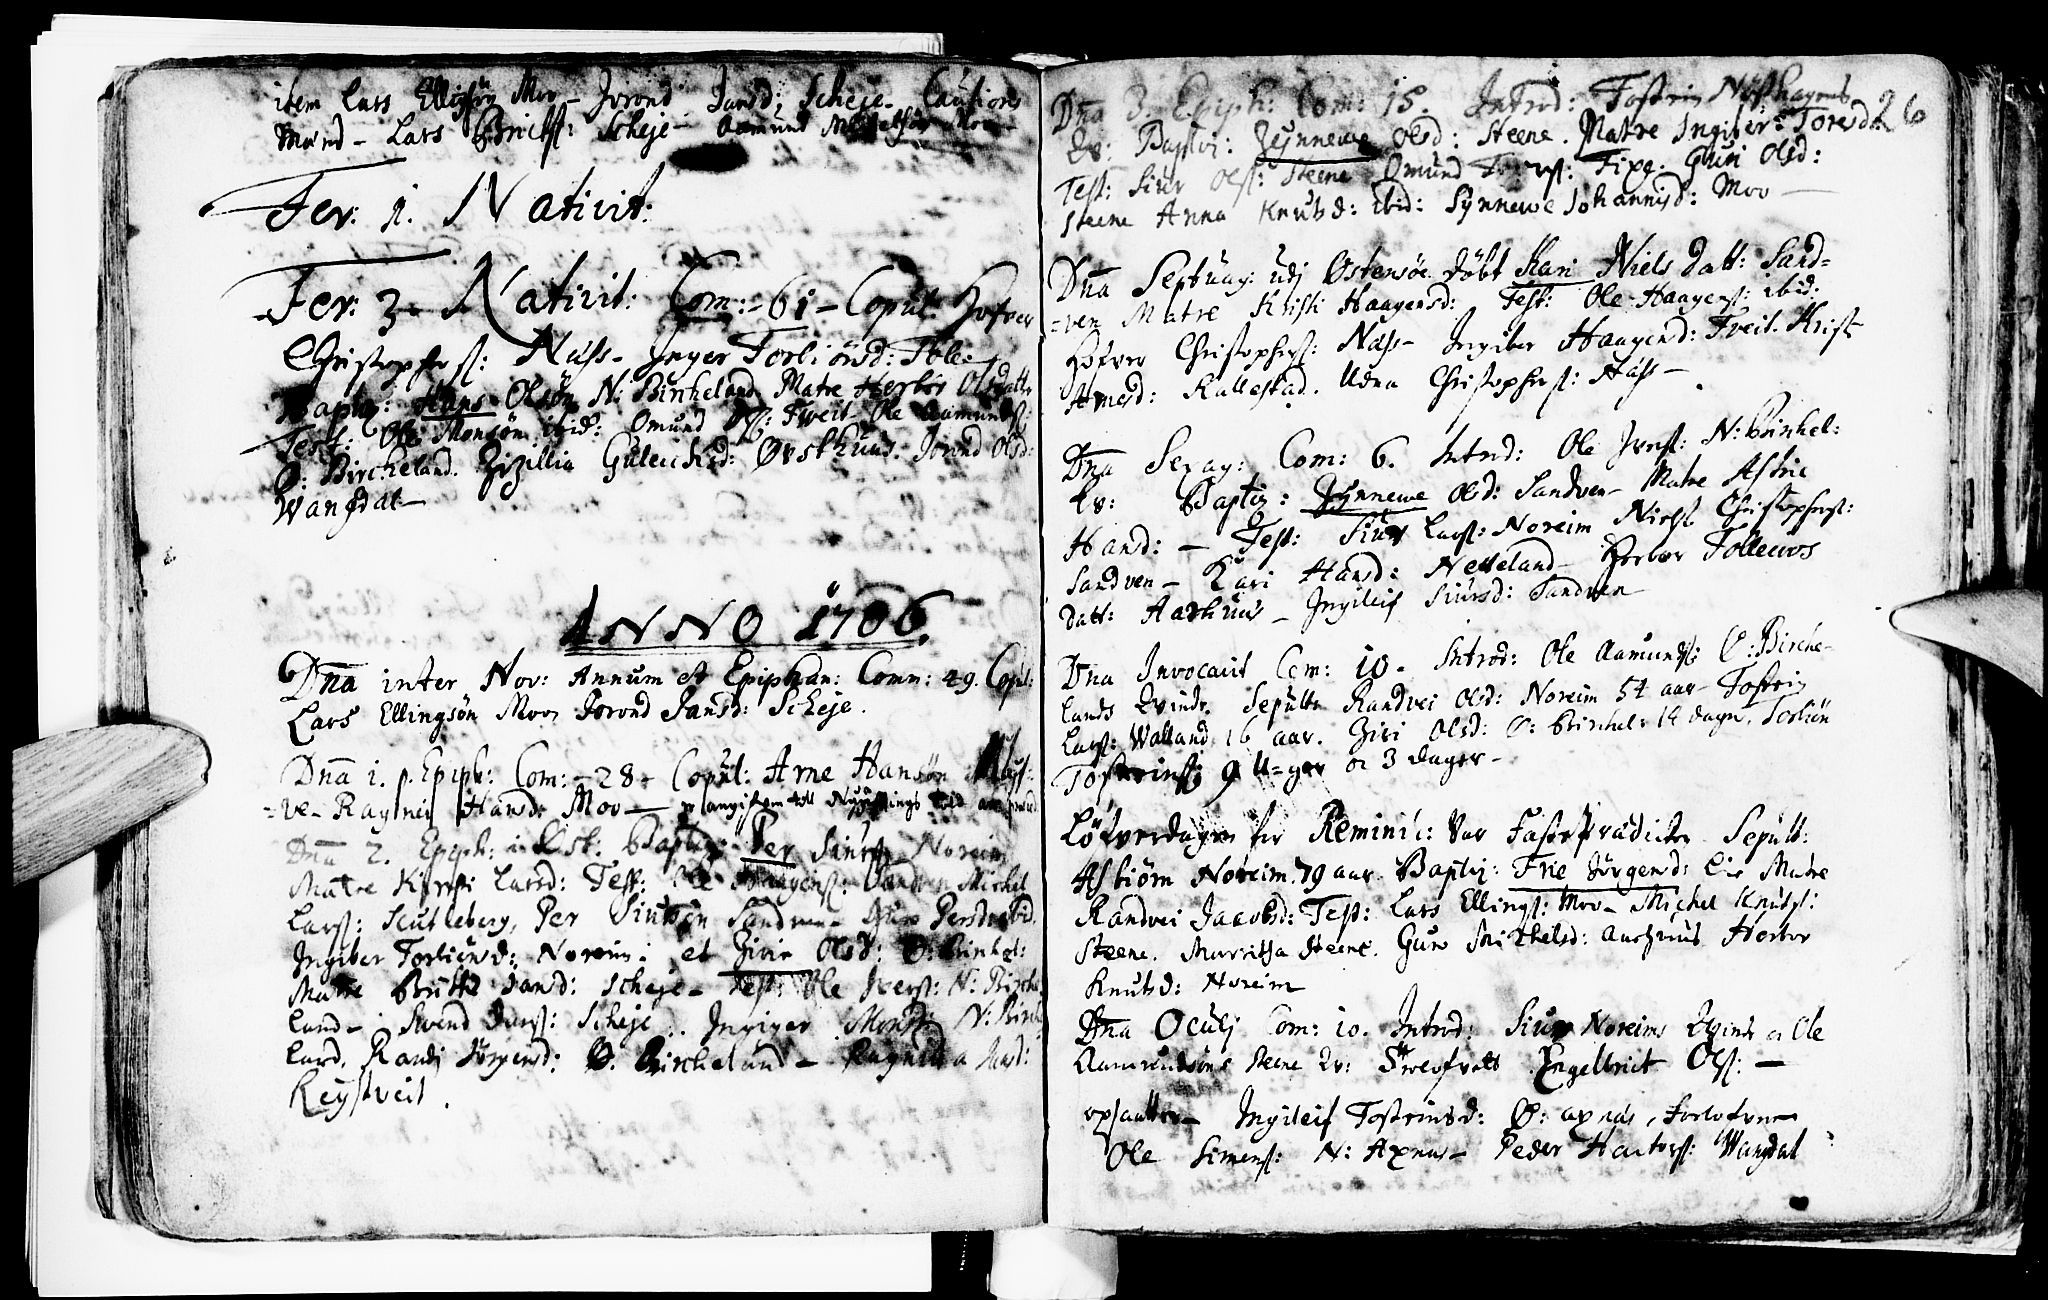 item Lars Ellingsøn Moe – Jorond Jansd: Scheje. Cautions
Mænd – Lars Brichs: Scheje – Aamund
Fer. 1. Nativit:
Fer: 3. Nativit: Com: – 61 – Coput:
Christophers: Næss – Inger Torbiørsd: Tole
Baptiz: Hans Olsøn N: Birkeland Matre Herbor Olsdatter
Test: Ole Monsøn ibid: Omund Tveit – Ole Aamunds:
Ø: Bircheland. Zizillia Guleichsd: Øvsthuus. Jorond Olsd:
Wangdal –
ANNO 1706.
Dna inter Nov: Annum et Epiphan: Comm: 49. Copul:
Lars Ellingsøn Moe Jorond Jansd: Scheje.
Dna 1. p. Epiph: Com: – 28 – Copul: Arne Hansøn
=ve – Hansd: Moe –
Dna 2. Epiph: in Øst: Baptiz: Per Siurs: Noreim
Matre Kirsti Larsd: Test: Ole Haagens: Sandven Michel
Lars: Scutleberg, Per Siursøn Sandven – Persdr ibid.
Ingiber Torbiørsd: Noreim: et Zirie Olsd: Ø: Birkel:
Matre Britte Jansd: Scheje – Test: Ole Ivers: N: Birche
land – Svend Jars: Scheje. Ingiger Monsd: N: Birche
land. Randi Jørgensd: Ø. Bircheland – Ragnilda
Reystveit.
26
Dna 3. Epiph: Com: 15. Introd: Tostein Nøsthagens
Qv: Baptiz: Zynnewe Olsd: Steene. Matre Ingiber: Toresd:
Test: Siur Ols: Steene Omund Fixe. Guri Olsd:
Steene Anna Knutsd: ibid: Synnewe Johannisd: Moe –
Dna Septuag: udj Østensøe døbt Kari Niels datt: Sand=
=ven Matre Kristi Haagensd: Test: Ole Haagens: ibid:
Christophers: Næss – Ingiber Haagensd: Tveit. Krist
Arnesd: Kallestad. Udna Christophers: Næss –
Dna Sexag: Com: 6. Introd: Ole Ivers: N: Birkel:
Qv: Baptiz: Zynnewe Olsd: Sandven – Matre Astrie
Hansd: – Test: Siur Lars: Noreim Niels Christophers:
Sandven – Kari Hansd: Netteland – Herbor Tolleivs
datt: Aarhuus – Ingileif Siursd: Sandven
Dna Invocavit Com: 10. Introd: Ole Aamunds: Ø: Birche–
lands Qvinde. Sepulta Randvei Olsd: Noreim 54 aar – Tostein
Lars: Walland 16 aar. Ziri Olsd: Ø: Birkel: 14 dage. Torbiøn
Tosteins: 9 U=ger oc 3 dager –
Løfverdagen for Reminis: Var Fasteprædicken Sepult:
Asbiørn Noreim. 79 aar. Baptiz: Frie Jørgensd: Lie Matre
Randvei Jacobsd: Test: Lars Ellings: Moe – Michel Knuts:
Steene. Marritha Steene. Guro Michelsd: Herbor
Knutsd: Noreim
Dna Oculj Com: 10. Introd: Siur Noreims Qvinde oc Ole
Aamundsøns Steene Qv: Engelbrict Ols: –
opsatte – Ingileif Tosteinsd: Ø: axnæs, Forlofvere
Ole Simens: N: Axnæs – Peder Wangdal